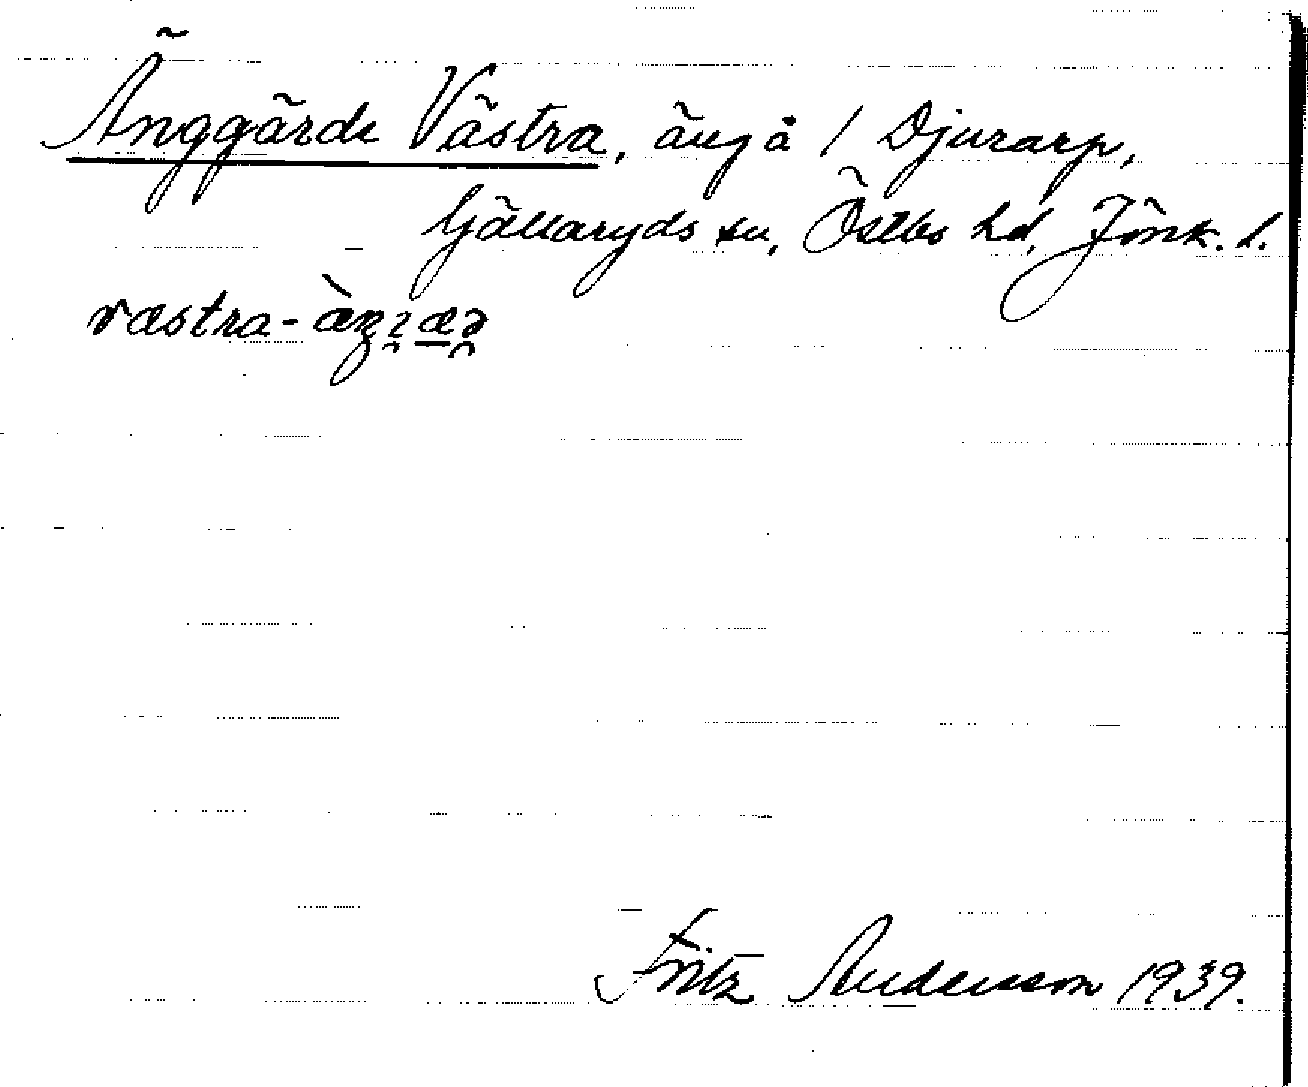 Änggärde Västra, äng å / Djurarp,
Gällaryds sn, Östbo hd, Jönk. l.
væstra-
Fritz Andersson 1939.